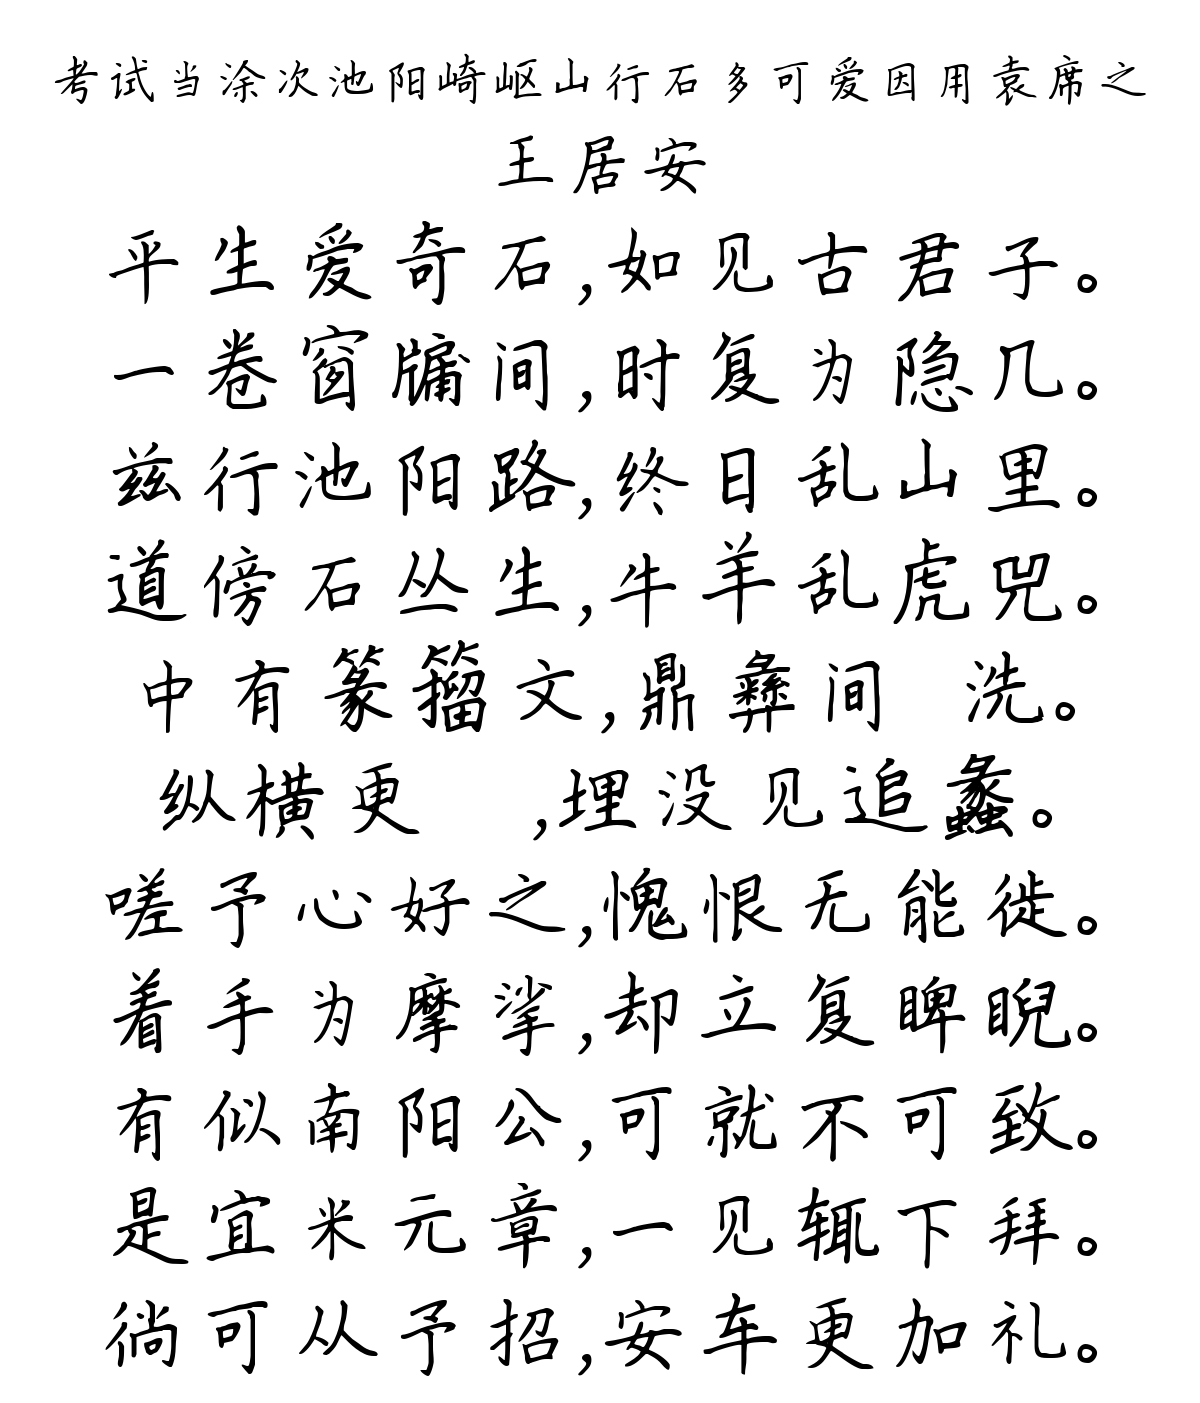 考试当涂次池阳崎岖山行石多可爱因用袁席之
王居安
平生爱奇石,如见古君子。
一卷窗牖间,时复为隐几。
兹行池阳路,终日乱山里。
道傍石丛生,牛羊乱虎兕。
中有篆籀文,鼎彝间 洗。
纵横更 ,埋没见追蠡。
嗟予心好之,愧恨无能徙。
着手为摩挲,却立复睥睨。
有似南阳公,可就不可致。
是宜米元章,一见辄下拜。
徜可从予招,安车更加礼。